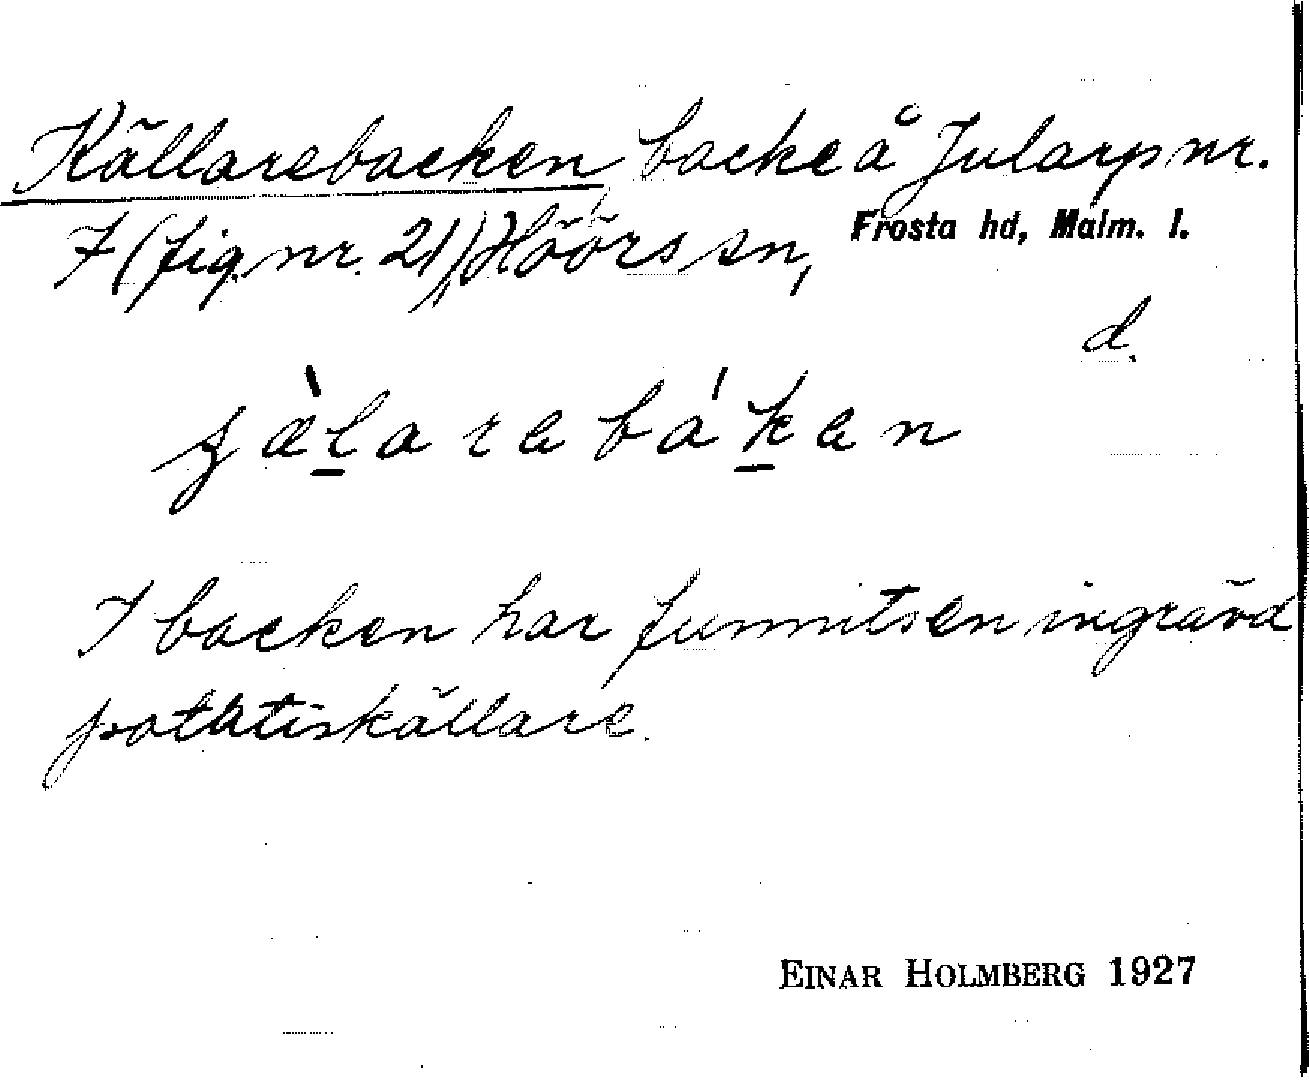 Källarebacken, backe å Jularp nr.
7 (fig. nr. 21), Höörs sn, Frosta hd, Malm. l.
d.
I backen har funnits en ingrävd
potatiskällare.
EINAR HOLMBERG 1927